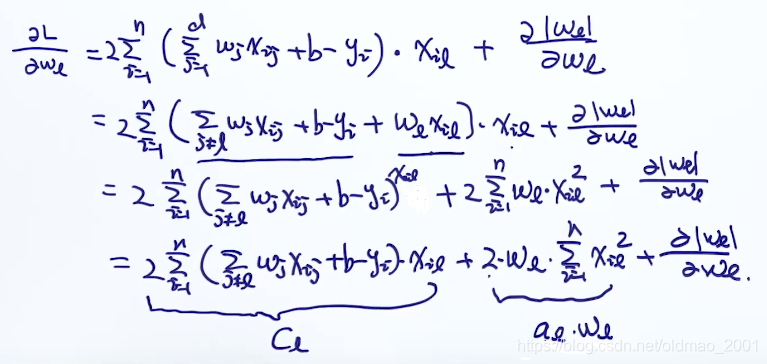 ∂L/∂w_l = 2∑_{i=1}^{n} (∑_{j=1}^{d} w_j x_{ij} + b - y_i) · x_{il} + ∂|w_l|/∂w_l
= 2∑_{i=1}^{n} (∑_{j≠l} w_j x_{ij} + b - y_i + w_l x_{il}) · x_{il} + ∂|w_l|/∂w_l
= 2 ∑_{i=1}^{n} (∑_{j≠l} w_j x_{ij} + b - y_i) x_{il} + 2∑_{i=1}^{n} w_l · x_{il}^2 + ∂|w_l|/∂w_l
= 2∑_{i=1}^{n} (∑_{j≠l} w_j x_{ij} + b - y_i) · x_{il} + 2 · w_l · ∑_{i=1}^{n} x_{il}^2 + ∂|w_l|/∂w_l.
C_l a_l · w_l
https://blog.csdn.net/oldmao_2001